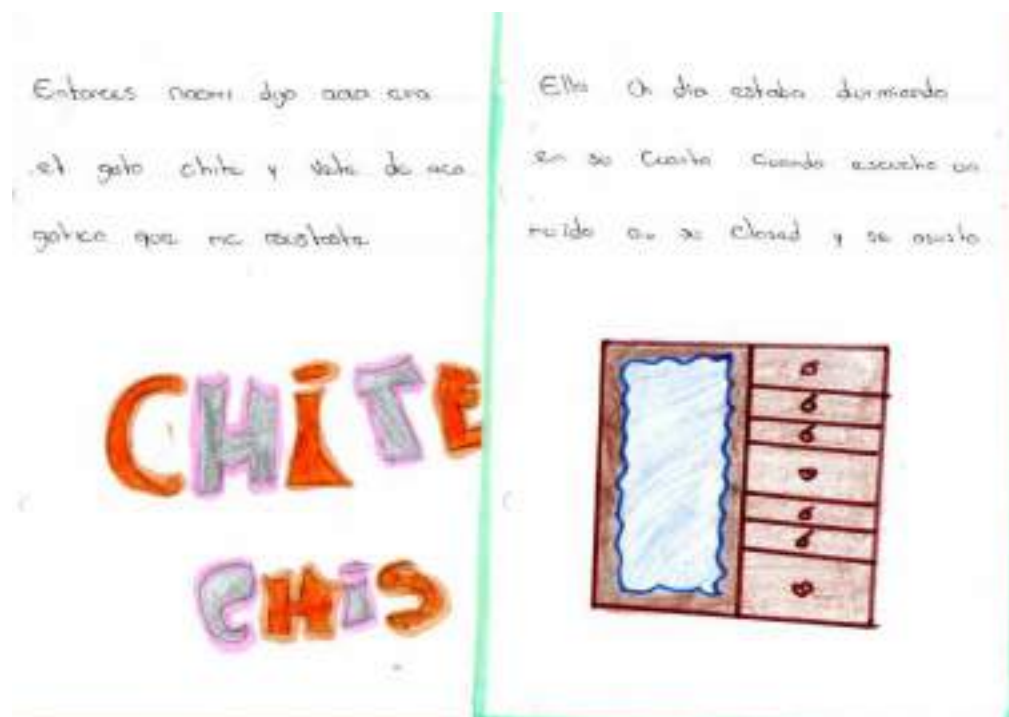 Entonces naomi dijo aaa era
el gato chite y vete de aca
gatico que me asustaste
CHITE
CHIS
Ella Un dia estaba durmiendo
en su Cuarto Cuando escucho un
ruido en su Closed y se asusto